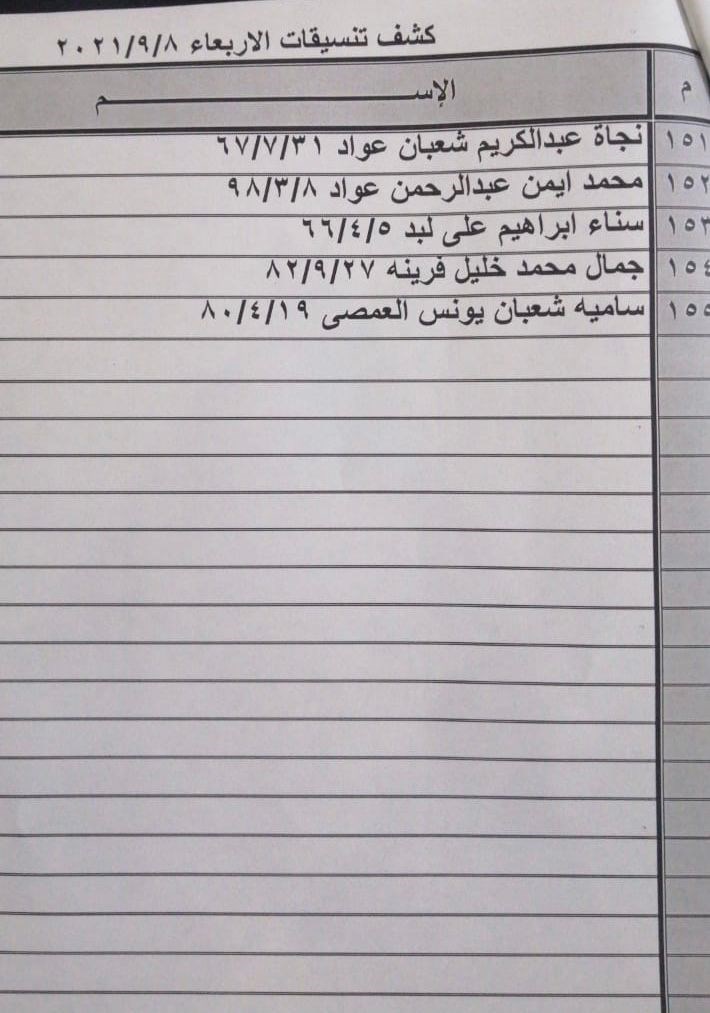 كشف تنسيقات الاربعاء ٢٠٢١/٩/٨
م الإســـــــــــــــــــــــم
١٥١ نجاة عبدالكريم شعبان عواد ٦٧/٧/٣١
١٥٢ محمد ايمن عبدالرحمن عواد ٩٨/٣/٨
١٥٣ سناء ابراهيم على لبد ٦٦/٤/٥
١٥٤ جمال محمد خليل فرينه ٨٢/٩/٢٧
١٥٥ ساميه شعبان يونس العمصى ٨٠/٤/١٩